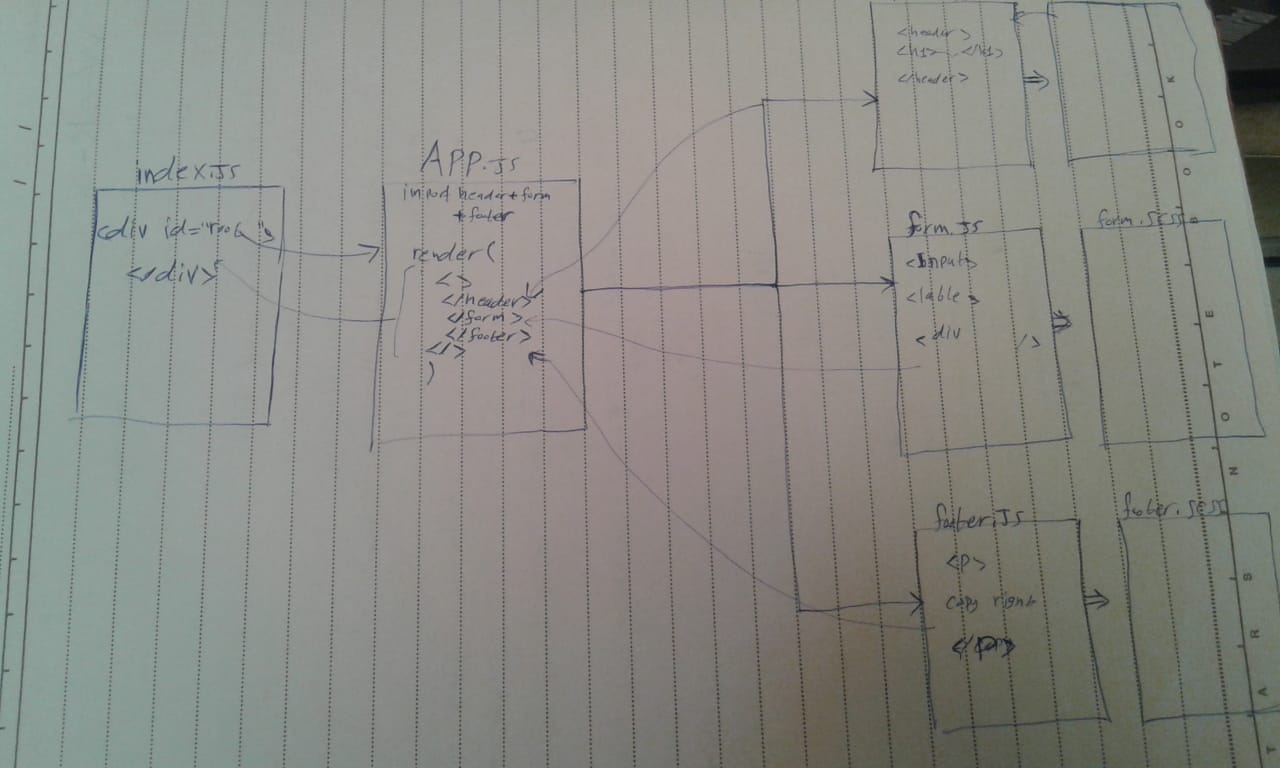 index.js
<div id="root">
</div>
App.js
import header + form
+ footer
render(
<>
</header>
</form>
</footer>
</>
)
<header>
<h1> </h1>
</header>
form.js
<Input>
<lable>
<div />
form.scss
footer.js
<p>
copy right
footer.scss
STAR S NOTE BOOK